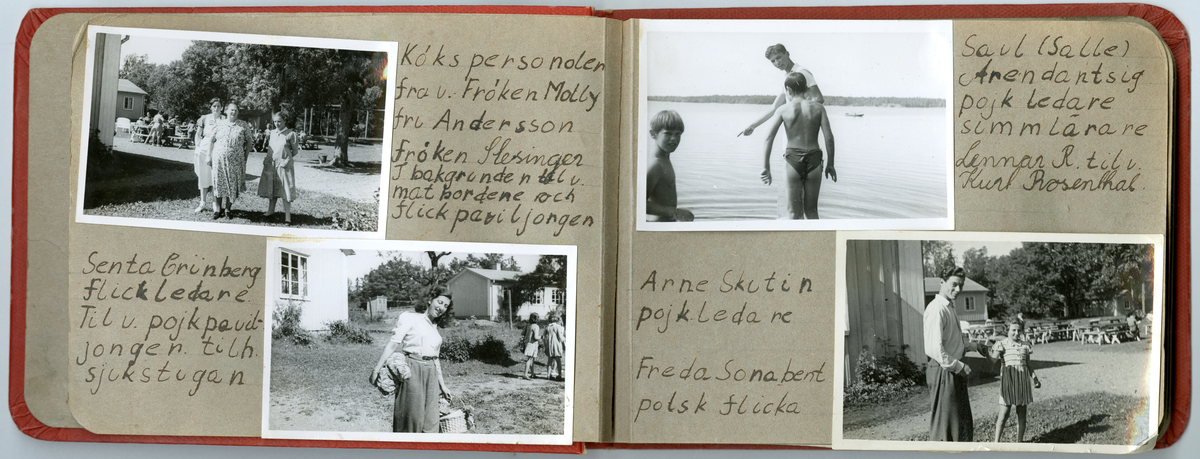 Köks personalen
fra v. Fröken Molly
fru Andersson
fröken Slesinger
I bakgrunden til v.
mat bordene och
flick paviljongen
Senta Grünberg
flickledare
Til v. pojkpavil-
jongen. till h.
sjukstugan
Saul (Salle)
Arendantsig
pojk ledare
simmlärare
Lennar R. til v.
Kurt Rosenthal.
Arne Skutin
pojkledare
Freda Sonabent
polsk flicka